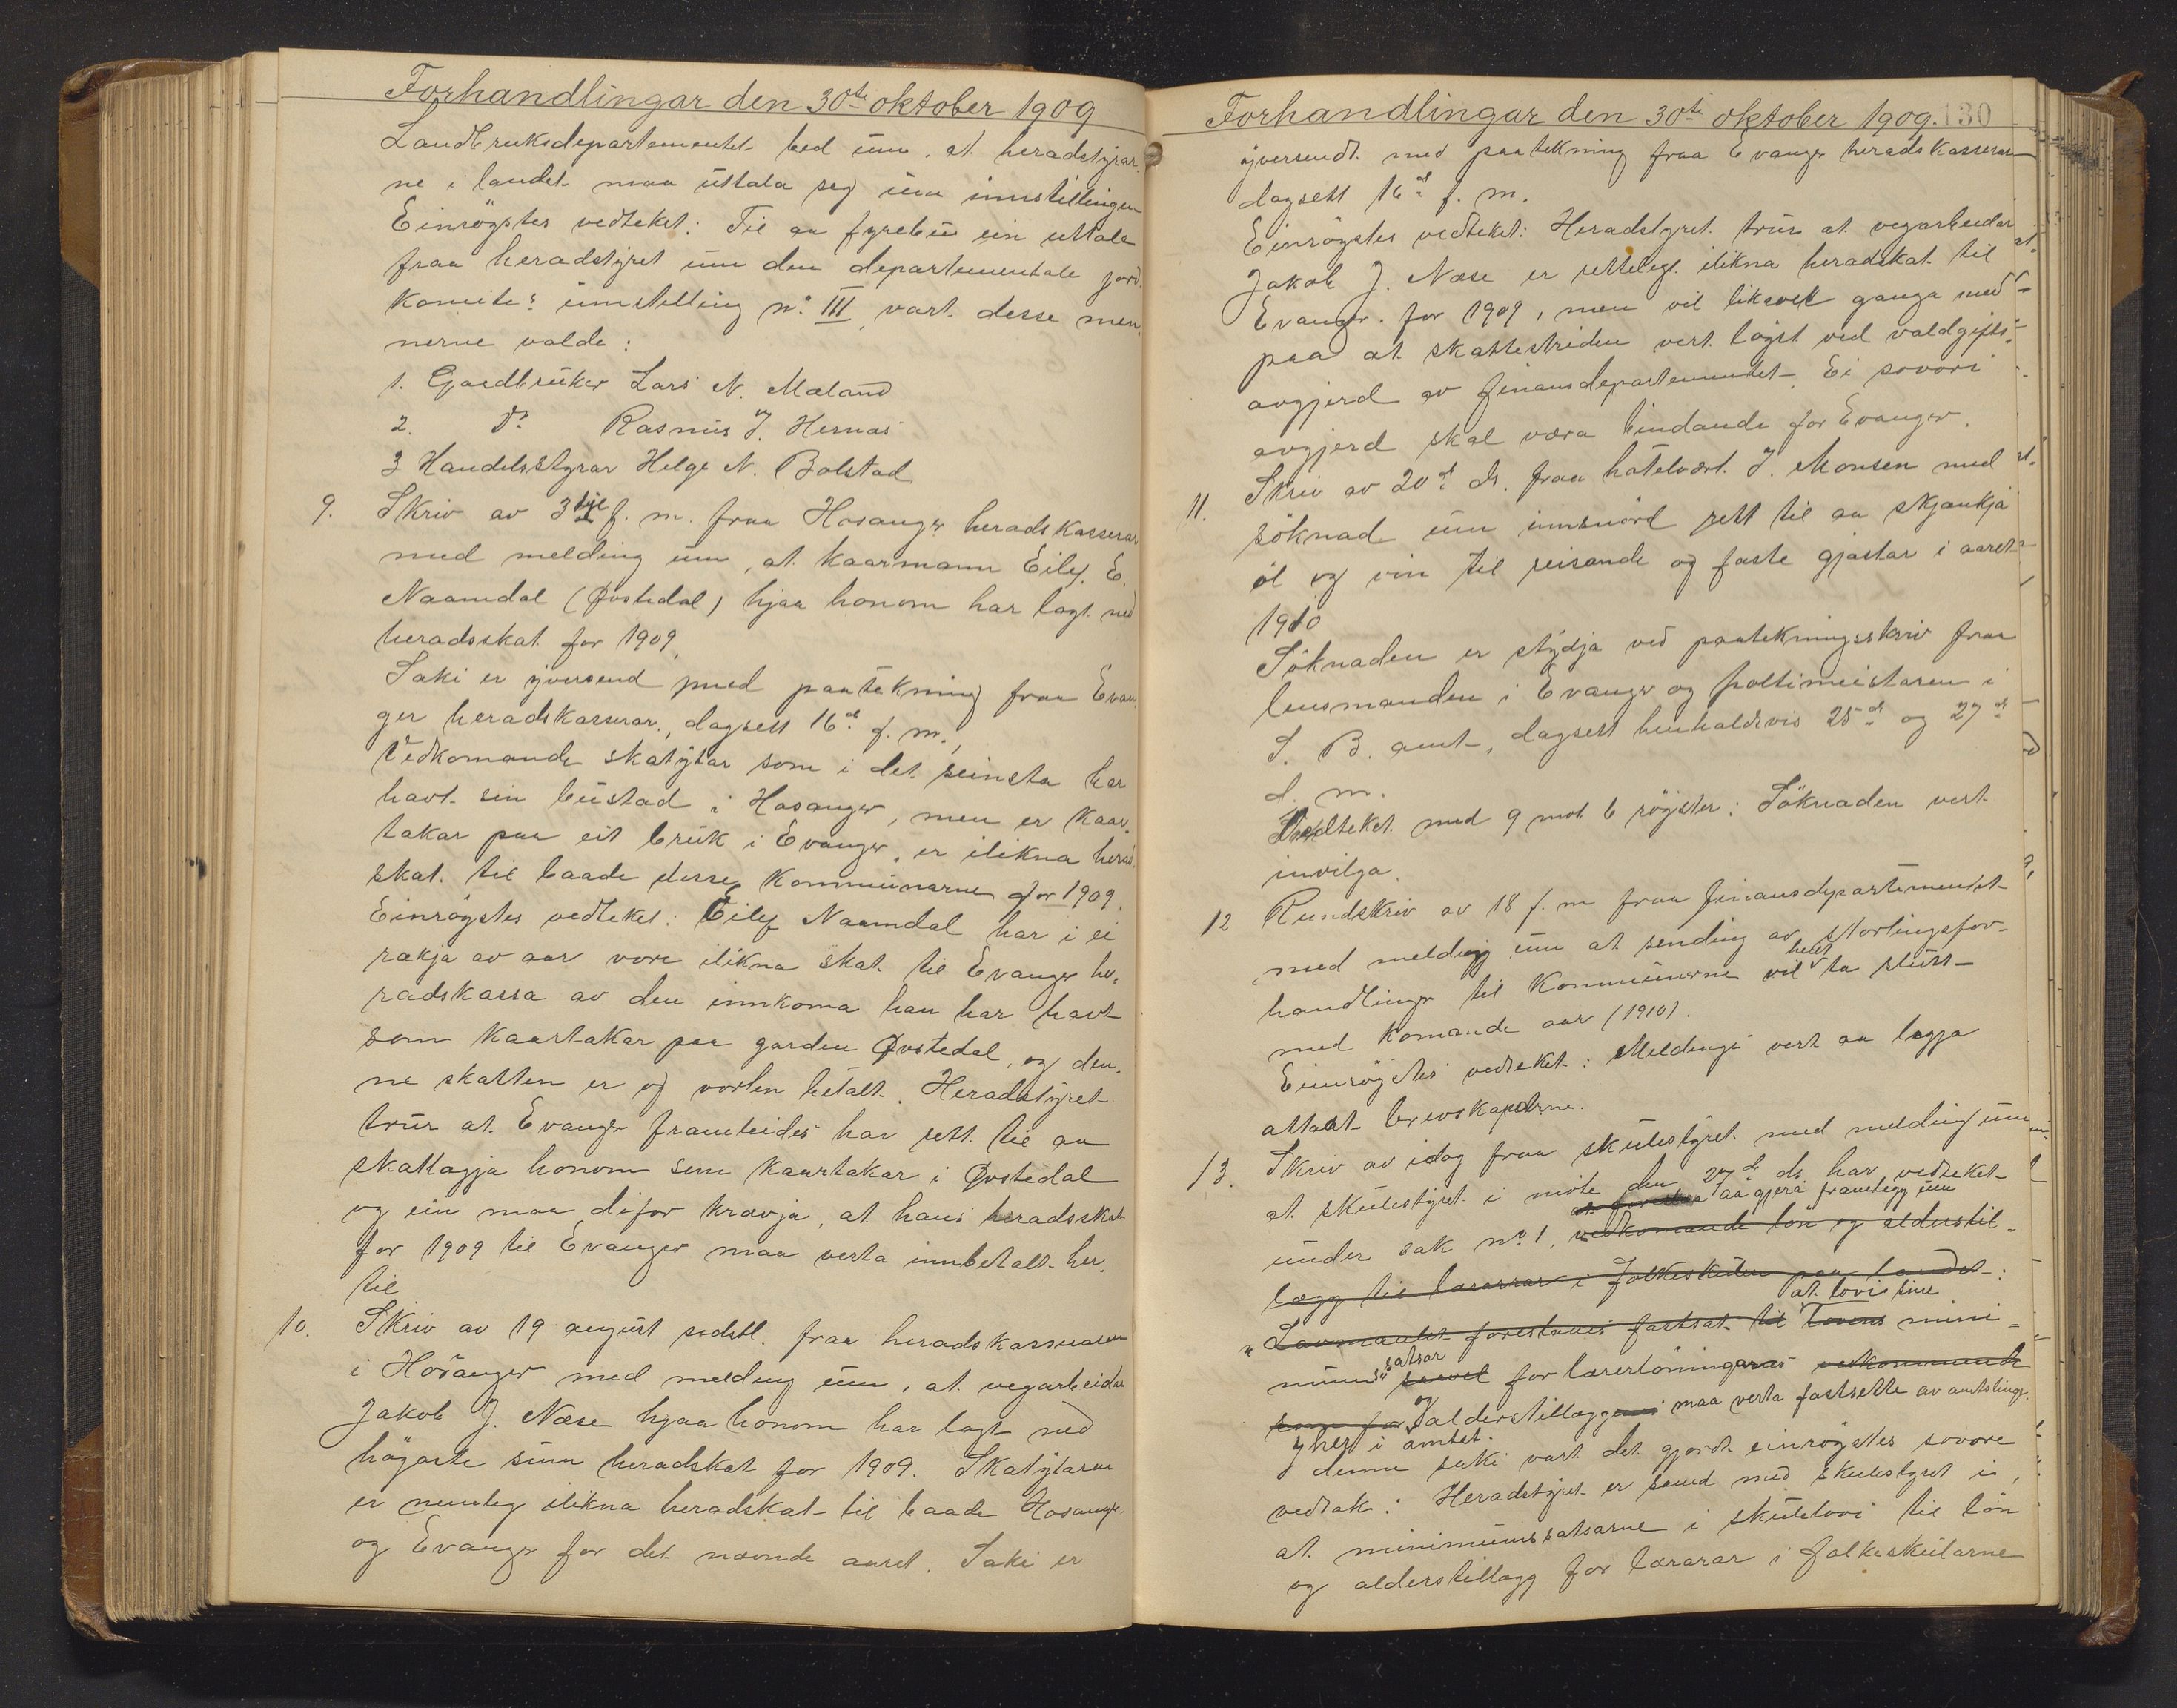 Forhandlingar den 30te oktober 1909
Landbruksdepartementet bed um, at heradstyrar-
ne i landet maa uttala seg um innstillingen
Einrøystes vedteket: Til aa fyrebu ein uttale
fraa heradstyret um den departementale jord-
komite's innstilling no III, vart desse men-
nerne valde:
1. Gardbruker Lars N. Maland
2. Do Rasmus J. Hernas
3 Handelsstyrar Helge N. Bolstad
9. Skriv av 3tje f. m. fraa Hosanger heradskasserar
med melding um, at kaarmann Eilef E.
Naamdal (Øvstedal) hjaa honom har lagt ned
heradsskat for 1909.
Saki er yversend med paatekning fraa Evan-
ger heradskasserar, dagsett 16de f. m.,
Vedkomande skatytar som i det seinsta har
havt sin bustad i Hosanger, men er kaar-
takar paa eit bruk i Evanger, er ilikna herad-
skat til baade desse kommunarne for 1909.
Einrøystes vedteket: Eilef Naamdal har i ei
rækja av aar vore ilikna skat til Evanger he-
radskassa av den innkoma han har havt
som kaartakar paa garden Øvstedal, og den-
ne skatten er og vorten betalt. Heradstyret
trur at Evanger framleides har rett til aa
skatlægja honom som kaartakar i Øvstedal
og ein maa difor krævja, at hans heradsskat
for 1909 til Evanger maa verta innbetalt her-
til
10. Skriv av 19 august sidstl. fraa heradskasseraren
i Hosanger med melding um, at vegarbeidar
Jakob J. Næse hjaa honom har lagt ned
høgaste sum heradskat for 1909. Skatytaren
er nemleg ilikna heradskat til baade Hosanger
og Evanger for det nevnde aaret. Saki er
Forhandlingar den 30te oktober 1909. 130
yversendt med paatekning fraa Evanger heradskasserar
dagsett 16de f. m.
Einrøystes vedteket: Heradstyret trur at vegarbeidar
Jakob J. Næse er rettelegt ilikna heradskat til
Evanger for 1909, men vil likevel ganga med
paa at skattestriden vert løyst ved valdgifts-
avgjerd av finansdepartementet. Ei sovori
avgjerd skal væra bindande for Evanger.
11. Skriv av 20de ds. fraa hotelvært J. Monsen med
søknad um innsnørd rett til aa skjænkja
øl og vin til reisande og faste gjæstar i aaret
1910
Søknaden er stydja ved paatekningsskriv fraa
lensmanden i Evanger og politimeistaren i
S. B. amt, dagsett henholdsvis 25de og 27de
d. m.
Vedteket med 9 mot 6 røyster: Søknaden vert
invilga.
12 Rundskriv av 18 f. m fraa finansdepartementet
med melding um at sending av stortingsfor-
handlinger til kommunerne vil helst ta slutt
med komande aar (1910).
Einrøystes vedteket: Meldingi vert aa leggja
attaat brevskaperne.
13. Skriv av idag fraa skulestyret med melding um
at skulestyret i møte den 27de ds. har vedteket
aa gjera framlegg um
under sak no 1, vedkomande løn og alderstil-
lægg til lærarar i folkeskulen paa landet:
at lovi sine
"Lønmaalet forestaues fastsat til Lovens mini-
mums" satsar for lærerløningar vedkommende
og alderstillægg maa verta fastsette av amtstinge
her i amtet.
I denne saki vart det gjordt einrøystes sovore
vedtak: Heradstyret er samd med skulestyret i,
at minimumssatsarne i skulelovi til løn
og alderstillægg for lærarar i folkeskularne